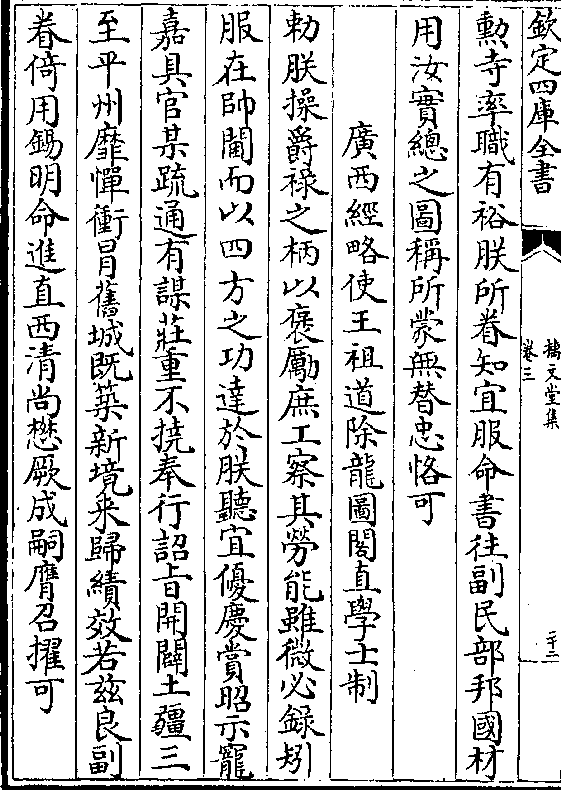 欽定四庫全書
摛文堂集
卷三
二十二
勲寺率職有裕朕所眷知宜服命書往副民部邦國材
用汝實總之圖稱所蒙無替忠恪可
廣西經略使王祖道除龍圖閣直學士制
勅朕操爵禄之柄以褒厲庶工察其勞能雖微必録矧
服在帥閫而以四方之功達於朕聽宜優慶賞昭示寵
嘉具官某疏通有謀莊重不撓奉行詔旨開闢土疆三
至平州靡憚衝冒舊城既築新境来歸績效若兹良副
眷倚用錫明命進直西清尚懋厥成嗣膺召擢可